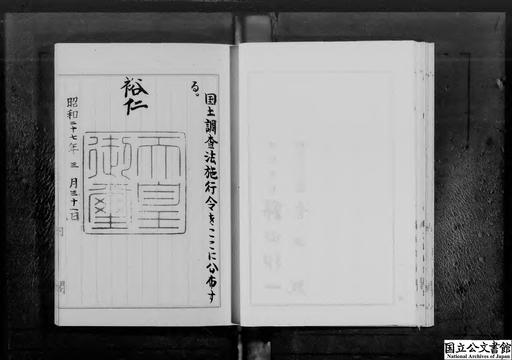 国土調査法施行令をここに公布す
る。
裕仁
天皇
御璽
昭和二十七年三月三十一日
国立公文書館
National Archives of Japan